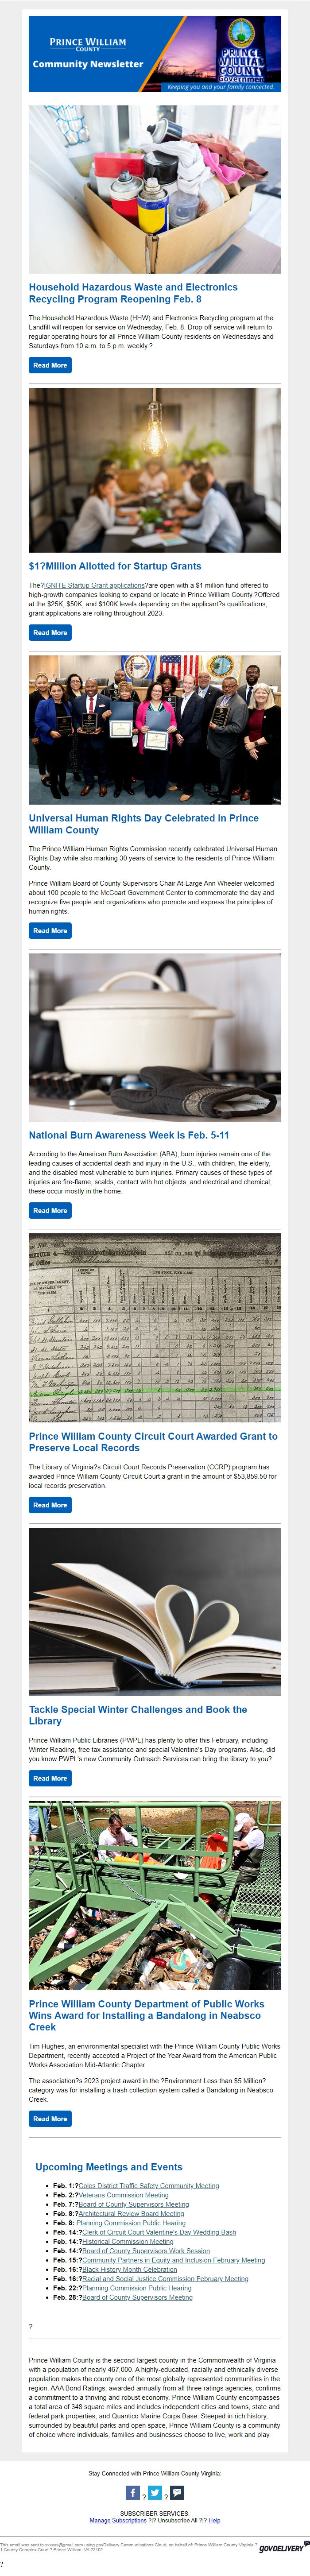 PRINCE WILLIAM
COUNTY
Community Newsletter
PRINCE
WILLIAM
COUNTY
Government
Keeping you and your family connected.
Household Hazardous Waste and Electronics
Recycling Program Reopening Feb. 8
The Household Hazardous Waste (HHW) and Electronics Recycling program at the
Landfill will reopen for service on Wednesday, Feb. 8. Drop-off service will return to
regular operating hours for all Prince William County residents on Wednesdays and
Saturdays from 10 a.m. to 5 p.m. weekly.?
Read More
$1?Million Allotted for Startup Grants
The?IGNITE Startup Grant applications?are open with a $1 million fund offered to
high-growth companies looking to expand or locate in Prince William County.?Offered
at the $25K, $50K, and $100K levels depending on the applicant?s qualifications,
grant applications are rolling throughout 2023.
Read More
Universal Human Rights Day Celebrated in Prince
William County
The Prince William Human Rights Commission recently celebrated Universal Human
Rights Day while also marking 30 years of service to the residents of Prince William
County.
Prince William Board of County Supervisors Chair At-Large Ann Wheeler welcomed
about 100 people to the McCoart Government Center to commemorate the day and
recognize five people and organizations who promote and express the principles of
human rights.
Read More
National Burn Awareness Week is Feb. 5-11
According to the American Burn Association (ABA), burn injuries remain one of the
leading causes of accidental death and injury in the U.S., with children, the elderly,
and the disabled most vulnerable to burn injuries. Primary causes of these types of
injuries are fire-flame, scalds, contact with hot objects, and electrical and chemical;
these occur mostly in the home.
Read More
Prince William County Circuit Court Awarded Grant to
Preserve Local Records
The Library of Virginia?s Circuit Court Records Preservation (CCRP) program has
awarded Prince William County Circuit Court a grant in the amount of $53,859.50 for
local records preservation.
Read More
Tackle Special Winter Challenges and Book the
Library
Prince William Public Libraries (PWPL) has plenty to offer this February, including
Winter Reading, free tax assistance and special Valentine's Day programs. Also, did
you know PWPL's new Community Outreach Services can bring the library to you?
Read More
Prince William County Department of Public Works
Wins Award for Installing a Bandalong in Neabsco
Creek
Tim Hughes, an environmental specialist with the Prince William County Public Works
Department, recently accepted a Project of the Year Award from the American Public
Works Association Mid-Atlantic Chapter.
The association?s 2023 project award in the ?Environment Less than $5 Million?
category was for installing a trash collection system called a Bandalong in Neabsco
Creek.
Read More
Upcoming Meetings and Events
Feb. 1:?Coles District Traffic Safety Community Meeting
Feb. 2:?Veterans Commission Meeting
Feb. 7:?Board of County Supervisors Meeting
Feb. 8:?Architectural Review Board Meeting
Feb. 8: Planning Commission Public Hearing
Feb. 14:?Clerk of Circuit Court Valentine's Day Wedding Bash
Feb. 14:?Historical Commission Meeting
Feb. 14:?Board of County Supervisors Work Session
Feb. 15:?Community Partners in Equity and Inclusion February Meeting
Feb. 16:?Black History Month Celebration
Feb. 16:?Racial and Social Justice Commission February Meeting
Feb. 22:?Planning Commission Public Hearing
Feb. 28:?Board of County Supervisors Meeting
?
Prince William County is the second-largest county in the Commonwealth of Virginia
with a population of nearly 467,000. A highly-educated, racially and ethnically diverse
population makes the county one of the most globally represented communities in the
region. AAA Bond Ratings, awarded annually from all three ratings agencies, confirms
a commitment to a thriving and robust economy. Prince William County encompasses
a total area of 348 square miles and includes independent cities and towns, state and
federal park properties, and Quantico Marine Corps Base. Steeped in rich history,
surrounded by beautiful parks and open space, Prince William County is a community
of choice where individuals, families and businesses choose to live, work and play.
Stay Connected with Prince William County Virginia:
? ?
SUBSCRIBER SERVICES:
Manage Subscriptions ?|? Unsubscribe All ?|? Help
using govDelivery Communications Cloud, on behalf of: Prince William County Virginia ?
1 County Complex Court ? Prince William, VA 22192
GOVDELIVERY
?